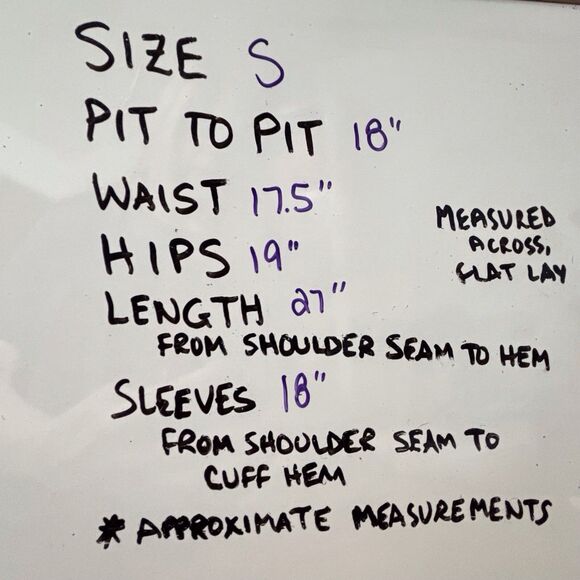 SIZE S
PIT TO PIT 18"
WAIST 17.5"
HIPS 19"
MEASURED
ACROSS,
FLAT LAY
LENGTH 27"
FROM SHOULDER SEAM TO HEM
SLEEVES 18"
FROM SHOULDER SEAM TO
CUFF HEM
* APPROXIMATE MEASUREMENTS